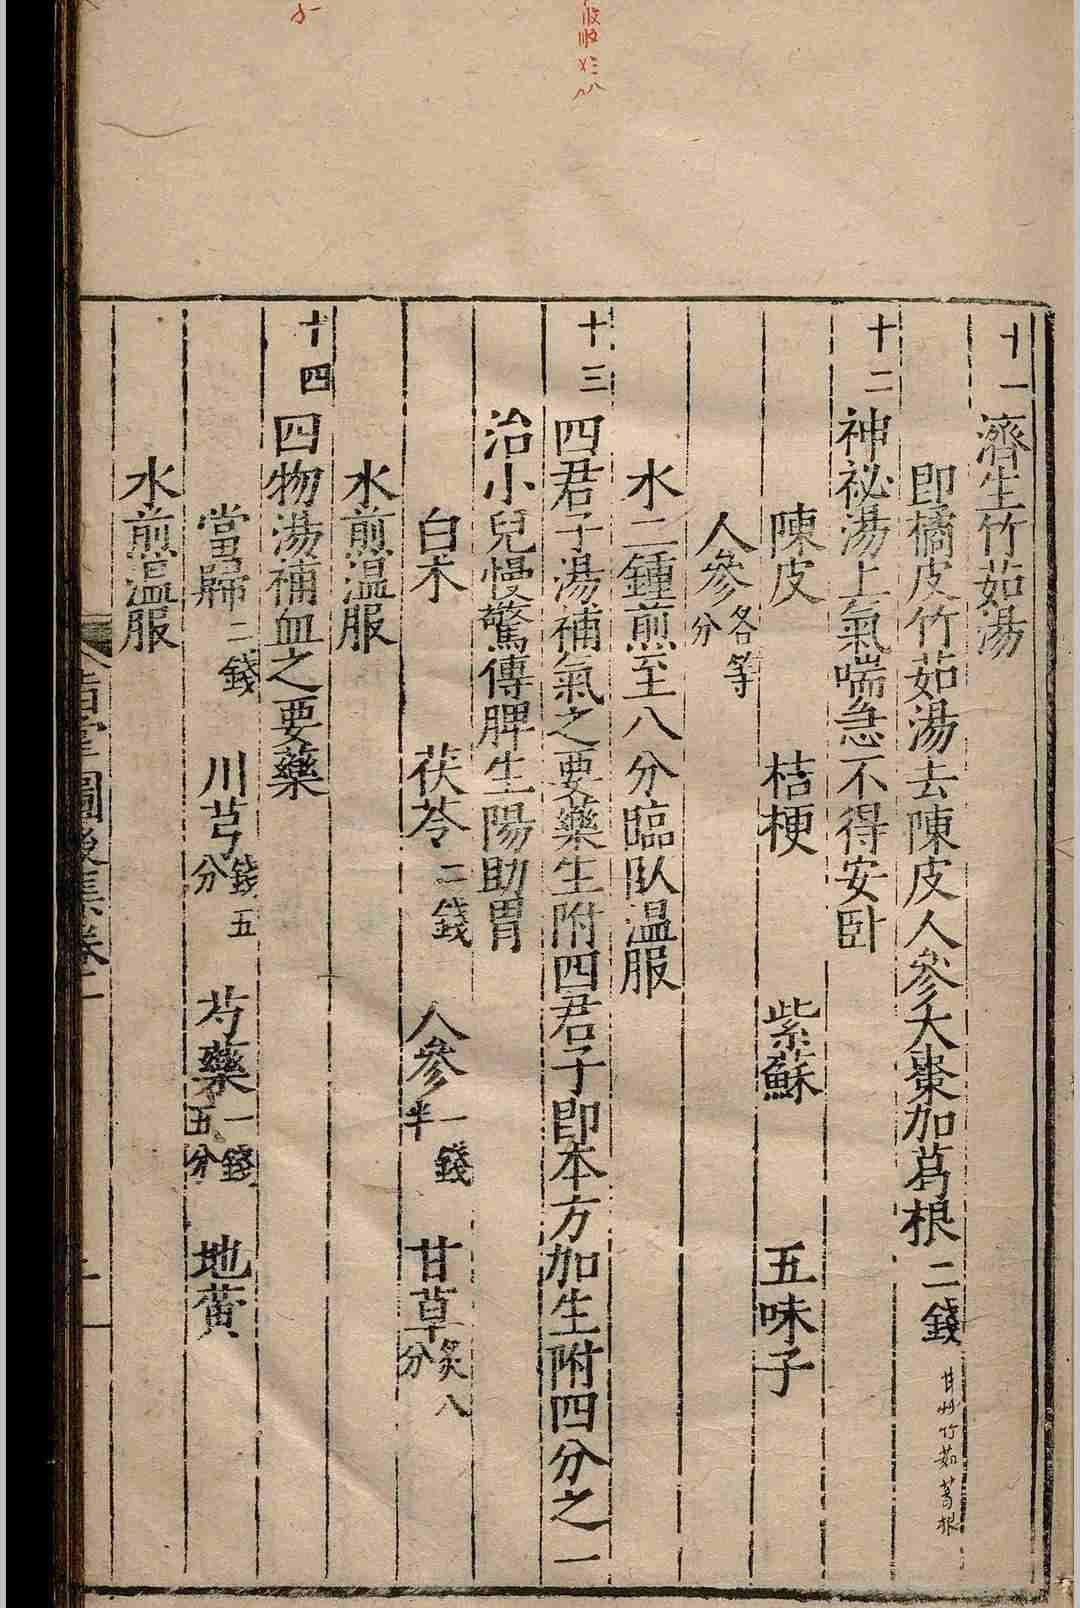 十一濟生竹茹湯
即橘皮竹茹湯去陳皮人參大棗加葛根二錢
甘艸竹茹葛根
十二神祕湯上氣喘急不得安卧
陳皮 桔梗 紫蘇 五味子
人參各等分
水二鍾煎至八分臨臥温服
十三四君子湯補氣之要藥生附四君子即本方加生附四分之一
治小兒慢驚傳脾生陽助胃
白朮 茯苓二錢 人參一錢半 甘草炙八分
水煎温服
十四四物湯補血之要藥
當歸二錢 川芎錢五分 芍藥一錢五分 地黄
水煎温服